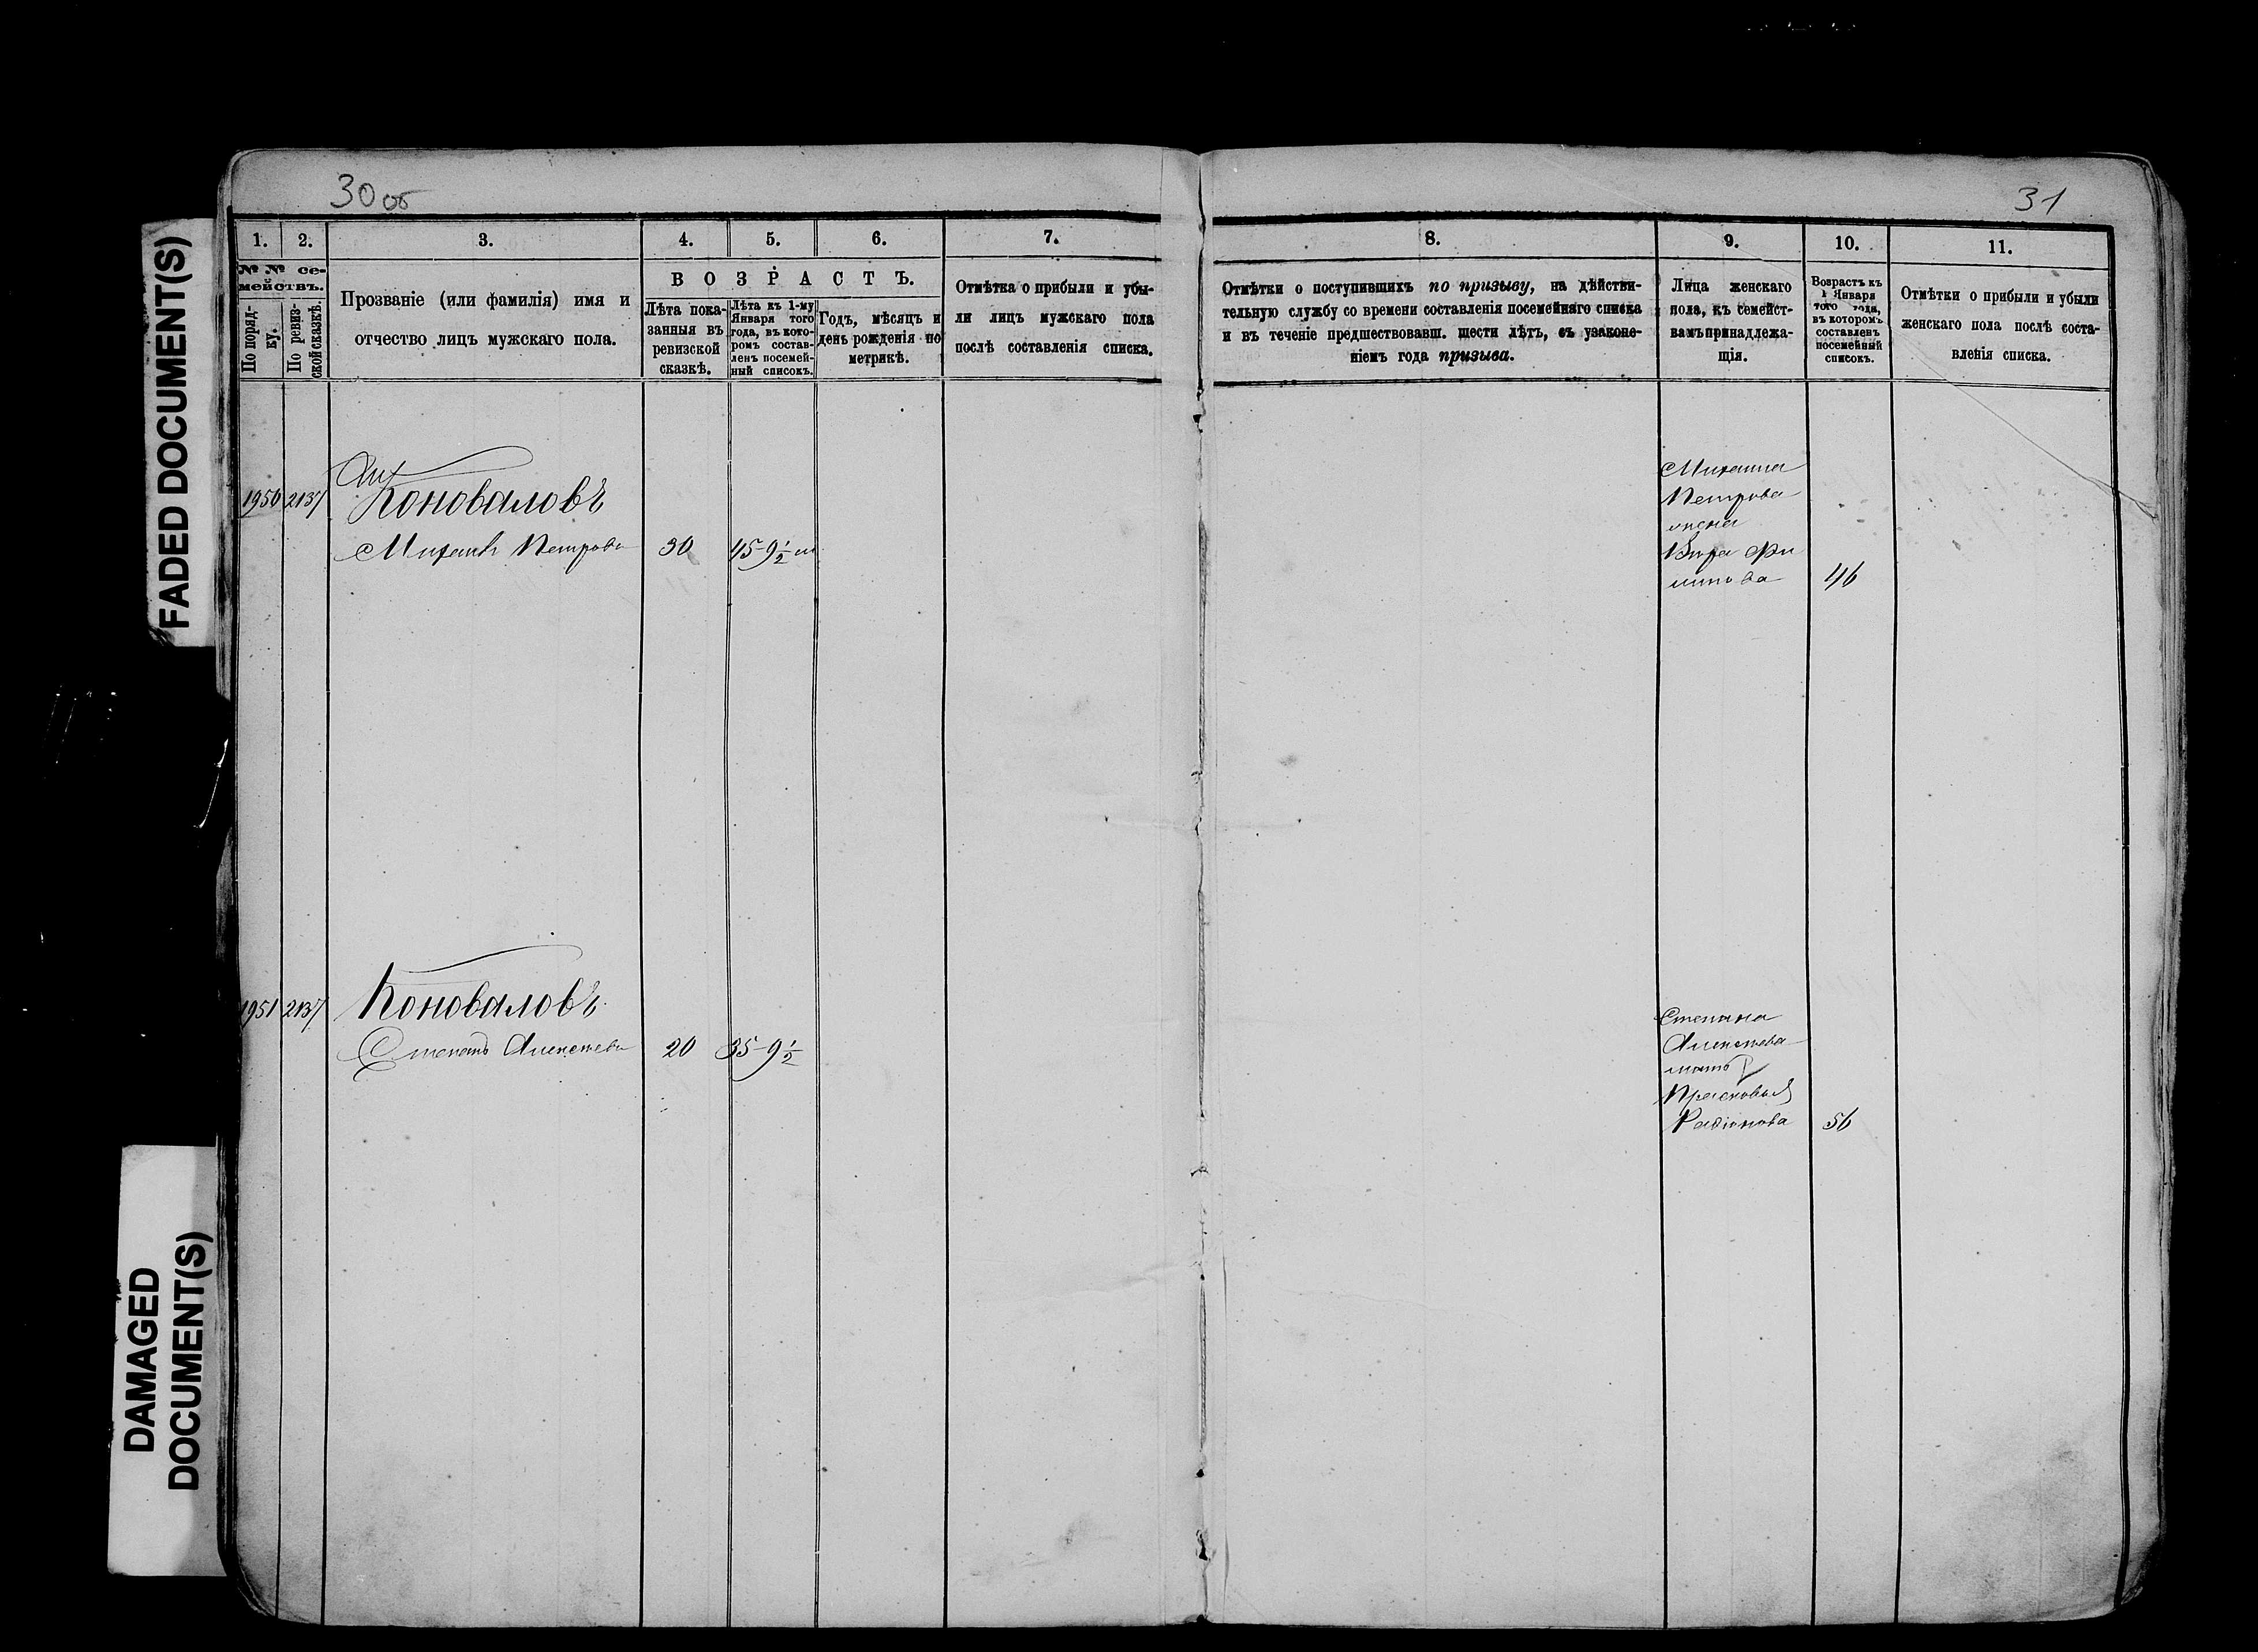 FADED DOCUMENT(S)
DAMAGED
DOCUMENT(S)
30 об
31
1. 2. 3. 4. 5. 6. 7.
№ № се-
мействъ.
По поряд-
ку.
По ревиз-
ской сказкѣ.
Прозваніе (или фамилія) имя и
отчество лицъ мужскаго пола.
ВОЗРАСТЪ.
Лѣта пока-
занныя въ
ревизской
сказкѣ.
Лѣта къ 1-му
Января того
года, въ кото-
ромъ состав-
ленъ посемей-
ный списокъ.
Годъ, мѣсяцъ и
день рожденія по
метрикѣ.
Отмѣтка о прибыли и убы-
ли лицъ мужскаго пола
послѣ составленія списка.
8. 9. 10. 11.
Отмѣтки о поступившихъ по призыву, на дѣйстви-
тельную службу со времени составленія посемейнаго списка
и въ теченіе предшествовавш. шести лѣтъ, съ узаконе-
ніемъ года призыва.
Лица женскаго
пола, къ семейст-
вамъ принадлежа-
щія.
Возрастъ къ
1 Января
того года,
въ которомъ
составленъ
посемейный
списокъ.
Отмѣтки о прибыли и убыли
женскаго пола послѣ соста-
вленія списка.
1950 2137 Коноваловъ
Михаилъ Петровъ 30 45-9½ м
Михаила
Петрова
жена
Вѣра Фи
липова 46
1951 2137 Коноваловъ
Степанъ Алексѣевъ 20 35-9½
Степана
Алексѣева
мать
Прасковья
Радіонова 56